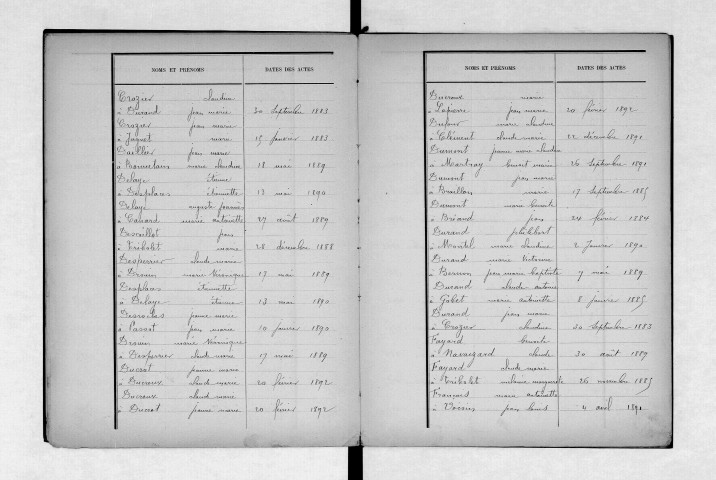 NOMS ET PRÉNOMS DATES DES ACTES
Crozier Claudine
à Durand jean marie 30 Septembre 1883
Crozier jean marie
à Jugnet marie 15 janvier 1883
Daillier jean marie
à marie Claudine 18 mai 1889
Delaye étienne
à Desplans étiennette 13 mai 1890
Delaye auguste joannès
à Canard marie antoinette 27 août 1889
jean
à Tribolet marie 28 décembre 1888
Desperrier claude marie
à Drouin marie Véronique 17 mai 1889
Desplans étiennette
à Delaye étienne 13 mai 1890
Desroches jeanne marie
à Passot jean marie 10 janvier 1890
Drouin marie Véronique
à Desperrier claude marie 17 mai 1889
Ducrot jeanne marie
à Ducroux claude marie 20 février 1892
Ducroux claude marie
à Ducrot jeanne marie 20 février 1892
NOMS ET PRÉNOMS DATES DES ACTES
Ducroux marie
à Lapierre jean marie 20 février 1892
Dufour marie claudine
à Clément claude marie 22 décembre 1890
Dumont jeanne marie claudine
à Martinay benoit marie 26 Septembre 1891
Dumont jean marie
à marie 17 Septembre 1885
Dumont marie benoite
à Briand jean 24 février 1884
Durand philibert
à Montel marie Claudine 2 Janvier 1890
Durand marie Victorine
à jean marie Baptiste 7 mai 1889
Durand claude antoine
à Gobet marie antoinette 8 janvier 1885
Durand jean marie
à Crozier claudine 30 Septembre 1883
Fayard benoite
à claude 30 août 1889
Fayard claude marie
à Tribolet marguerite 26 novembre 1885
François marie antoinette
à jean 4 avril 1891